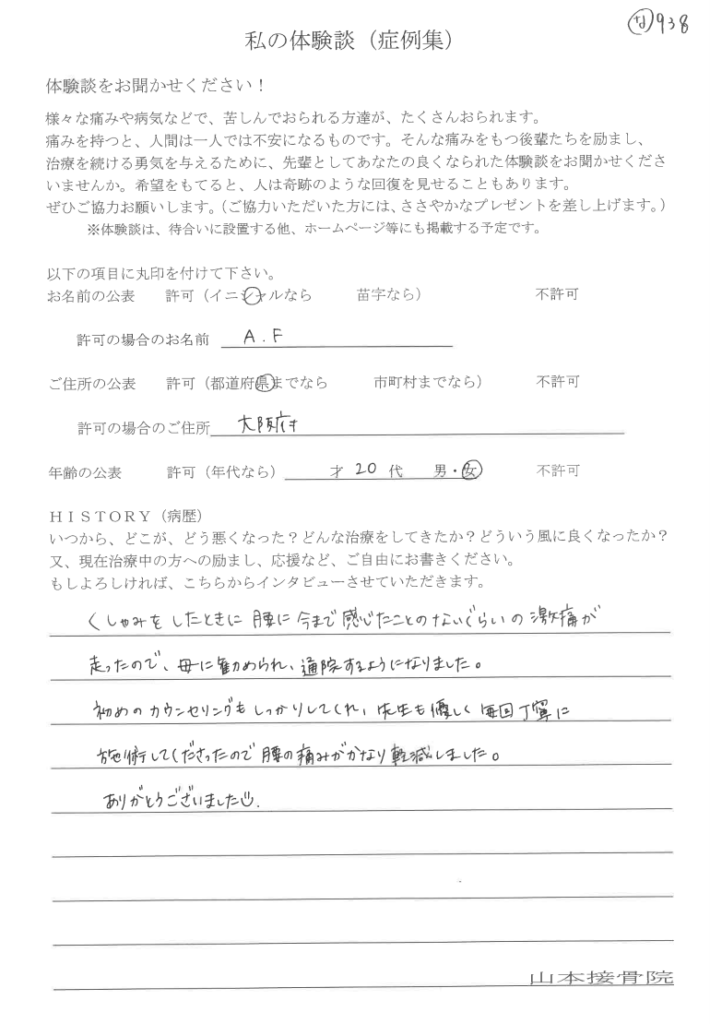 な938
私の体験談（症例集）
体験談をお聞かせください！
様々な痛みや病気などで、苦しんでおられる方達が、たくさんおられます。
痛みを持つと、人間は一人では不安になるものです。そんな痛みをもつ後輩たちを励まし、
治療を続ける勇気を与えるために、先輩としてあなたの良くなられた体験談をお聞かせくださ
いませんか。希望をもてると、人は奇跡のような回復を見せることもあります。
ぜひご協力お願いします。（ご協力いただいた方には、ささやかなプレゼントを差し上げます。）
※体験談は、待合いに設置する他、ホームページ等にも掲載する予定です。
以下の項目に丸印を付けて下さい。
お名前の公表 許可（イニシャルなら 苗字なら） 不許可
許可の場合のお名前 A.F
ご住所の公表 許可（都道府県までなら 市町村までなら） 不許可
許可の場合のご住所 大阪府
年齢の公表 許可（年代なら） 才 20 代 男・女 不許可
ＨＩＳＴＯＲＹ（病歴）
いつから、どこが、どう悪くなった？どんな治療をしてきたか？どういう風に良くなったか？
又、現在治療中の方への励まし、応援など、ご自由にお書きください。
もしよろしければ、こちらからインタビューさせていただきます。
くしゃみをしたときに腰に今まで感じたことのないぐらいの激痛が
走ったので、母に勧められ、通院するようになりました。
初めのカウンセリングもしっかりしてくれ、先生も優しく毎回丁寧に
施術してくださったので腰の痛みがかなり軽減しました。
ありがとうございました☺.
山本接骨院